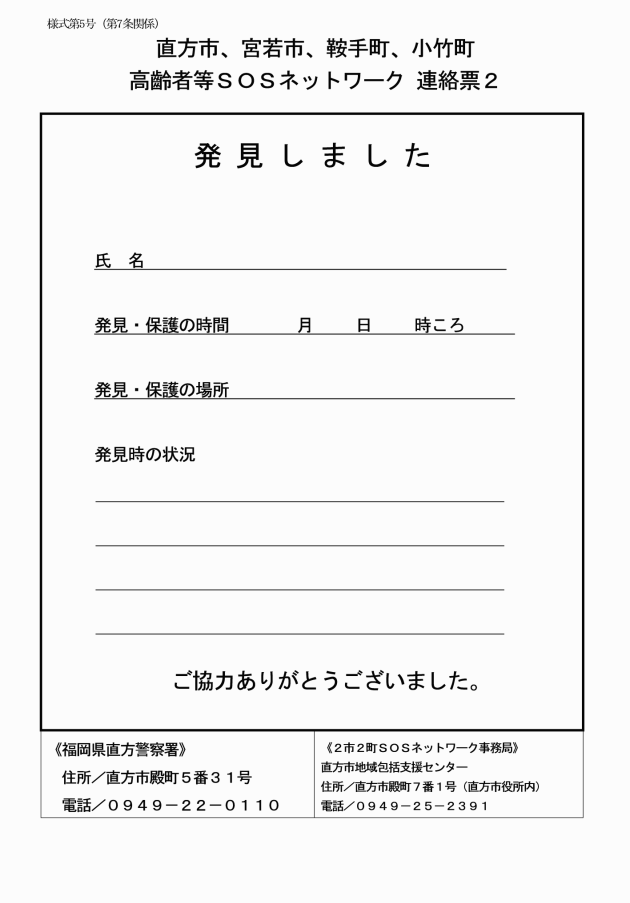 様式第5号（第7条関係）
直方市、宮若市、鞍手町、小竹町
高齢者等ＳＯＳネットワーク 連絡票２
発見しました
氏　名
発見・保護の時間　　　　月　　日　　時ころ
発見・保護の場所
発見時の状況
ご協力ありがとうございました。
《福岡県直方警察署》
住所／直方市殿町５番３１号
電話／０９４９－２２－０１１０
《２市２町ＳＯＳネットワーク事務局》
直方市地域包括支援センター
住所／直方市殿町７番１号（直方市役所内）
電話／０９４９－２５－２３９１